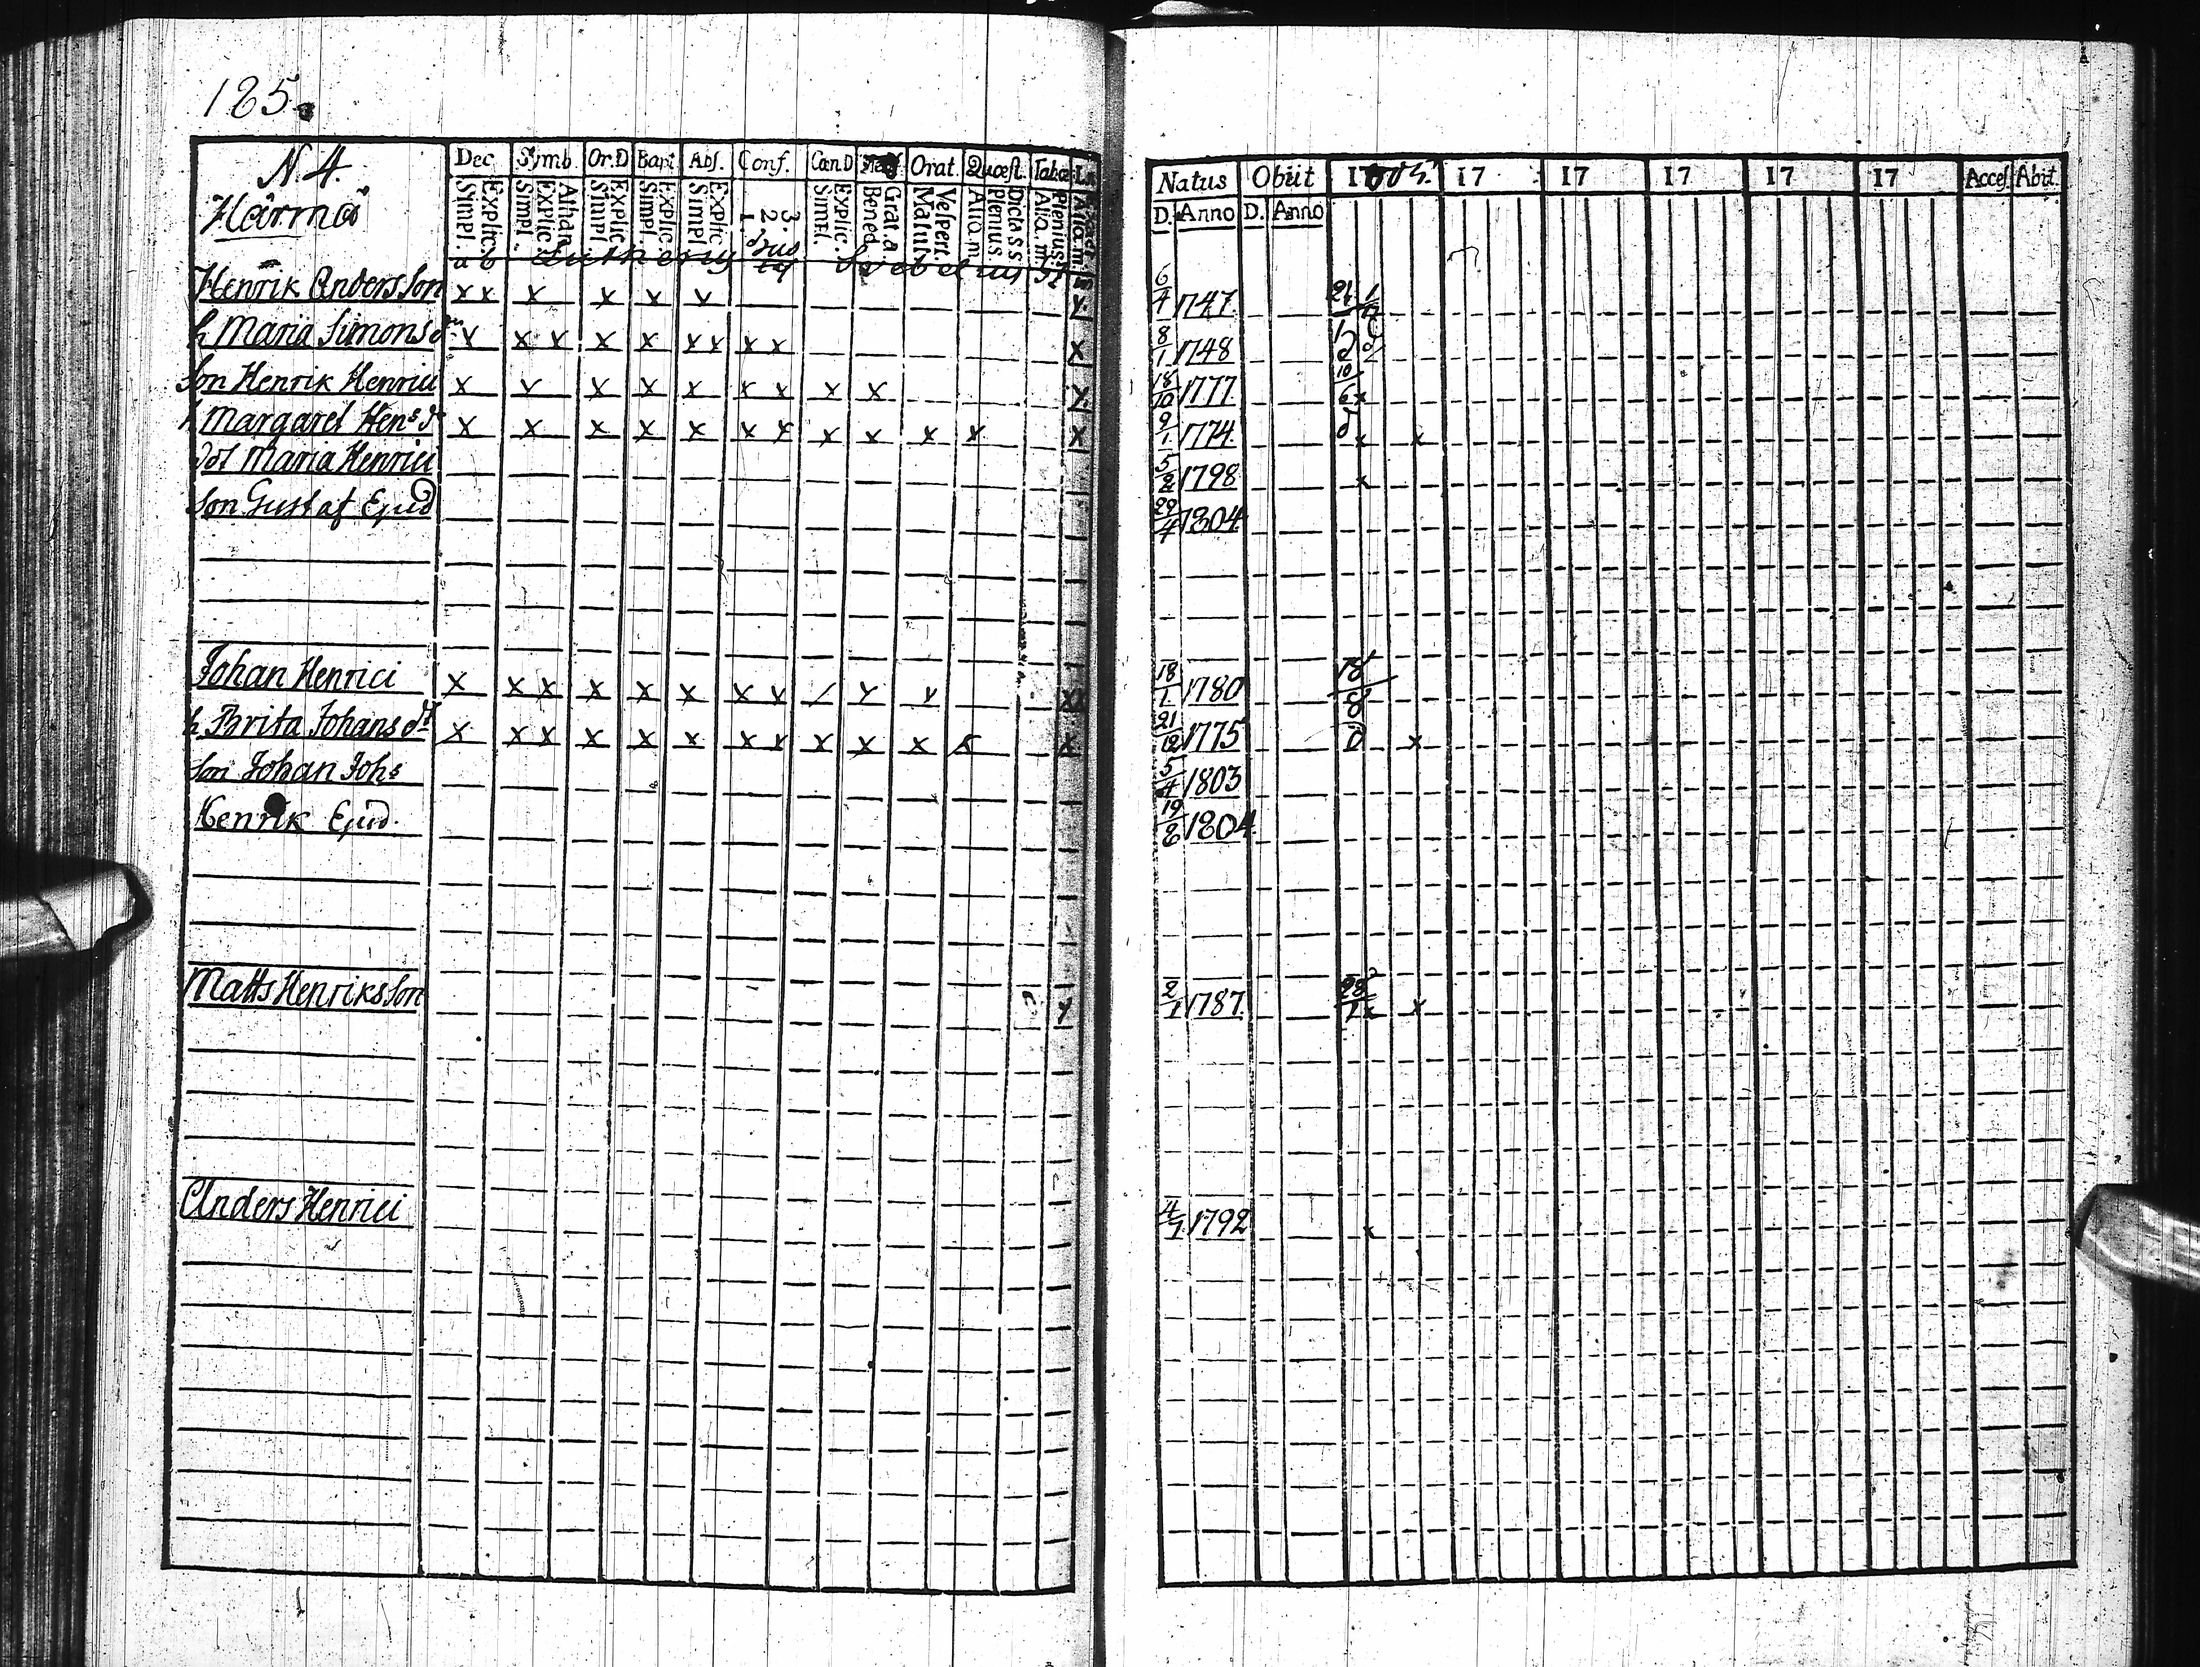 185.
N. 4.
Härmä
Dec. Symb. Or.D Bapt Abs. Conf. Cœn D Orat. Quæst. Tabæ
Simpl. Explic. Simpl. Explic. Athan. Simpl. Explic. Simpl. Explic. Simpl. Explic. 1. 2. 3. Simpl. Explic. Bened. Grat. a. Matut. Vespert. Alia. m. Plenius. Dicta s s Alia. m. Plenius. Alia. m.
a b Lutherus Svebelius
Henrik Andersson x x x x x x x
h Maria Simonsd:r x x x x x x x x x x
son Henrik Henrici x x x x x x x x x x
h Margaret Hens dr x x x x x x x x x x x x
dot Maria Henrici
Son Gustaf Ejud
Johan Henrici x x x x x x x x / x x x
h Brita Johansdt x x x x x x x x x x x x x
Son Johan Johs
Henrik Ejud.
Matts Henriksson x
Anders Henrici
Natus Obiit 17 17 17 17 17 17 Acces. Abit.
D. Anno D. Anno
6/4 1747.
8/1 1748
18/10 1777 x
9/1 1774 x x
5/2 1798 x
29/4 1804
18/1 1780 18/8
21/12 1775 x
5/4 1803
19/8 1804
2/1 1787. 28 x x
4/1 1792 x